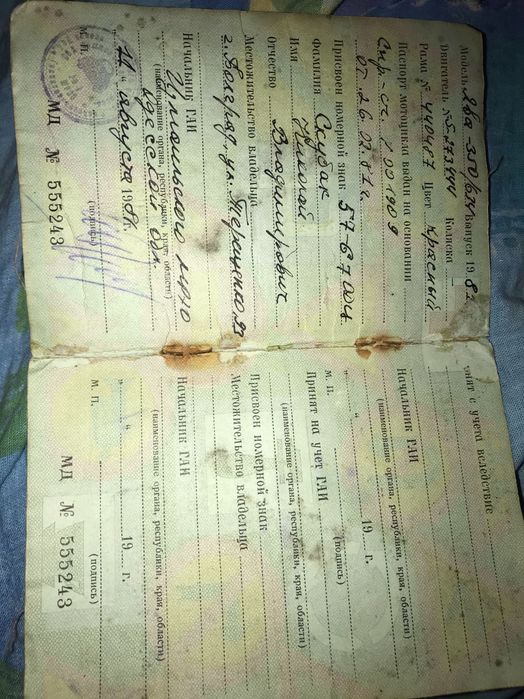 Модель Ява 350/634 Выпуск 1981
Двигатель № Коляска —
Рама № 440417 Цвет красный
Паспорт мотоцикла выдан на основании
Спр-сч.
от 26.02.81г.
Присвоен номерной знак 5767 ООИ
Фамилия Скурак
Имя Николай
Отчество Владимирович
Местожительство владельца
г. Болград, ул. Терещенко
Начальник ГАИ Измаильского
(наименование органа, республики, края, области)
Одесской обл.
" 11 " августа 198 г.
М. П. (подпись)
МД № 555243
снят с учета вследствие
Начальник ГАИ
(наименование органа, республики, края, области)
" " 19 г.
М. П. (подпись)
Принят на учет ГАИ
(наименование органа, республики, края, области)
Присвоен номерной знак
Местожительство владельца
Начальник ГАИ
(наименование органа, республики, края, области)
" " 19 г.
М. П. (подпись)
МД № 555243